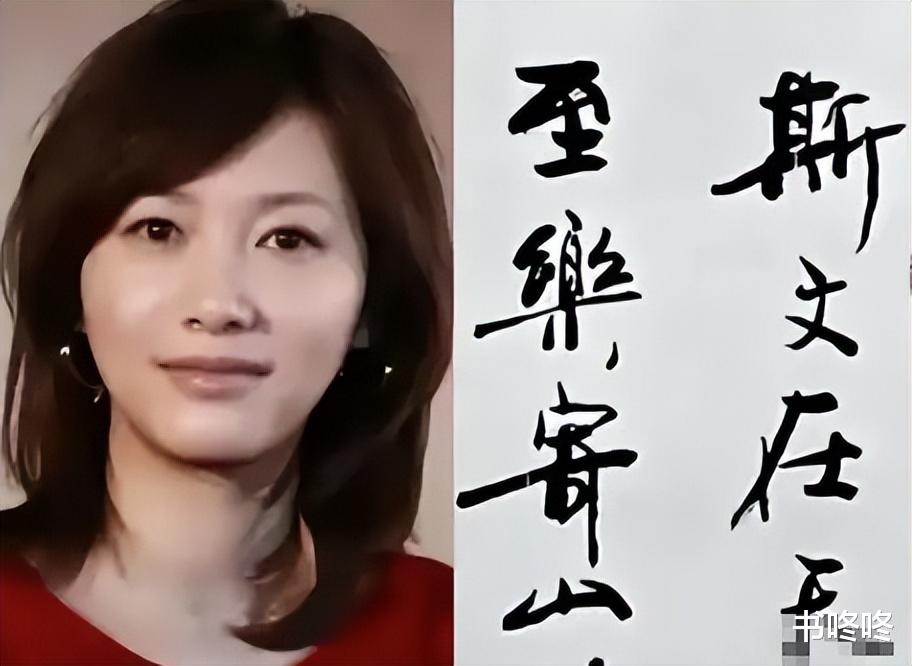 斯文在
至樂寄山
书咚咚